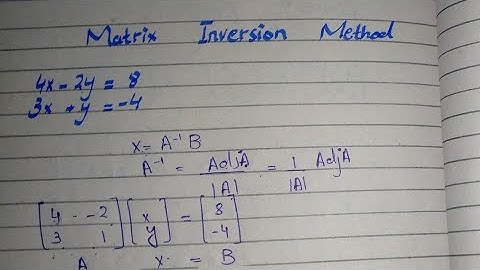 Matrix Inversion Method
4x - 2y = 8
3x + y = -4
x = A⁻¹ B
A⁻¹ = AdjA / |A| = 1 / |A| AdjA
[4 -2] [x] = [8]
[3 1] [y] [-4]
A x = B